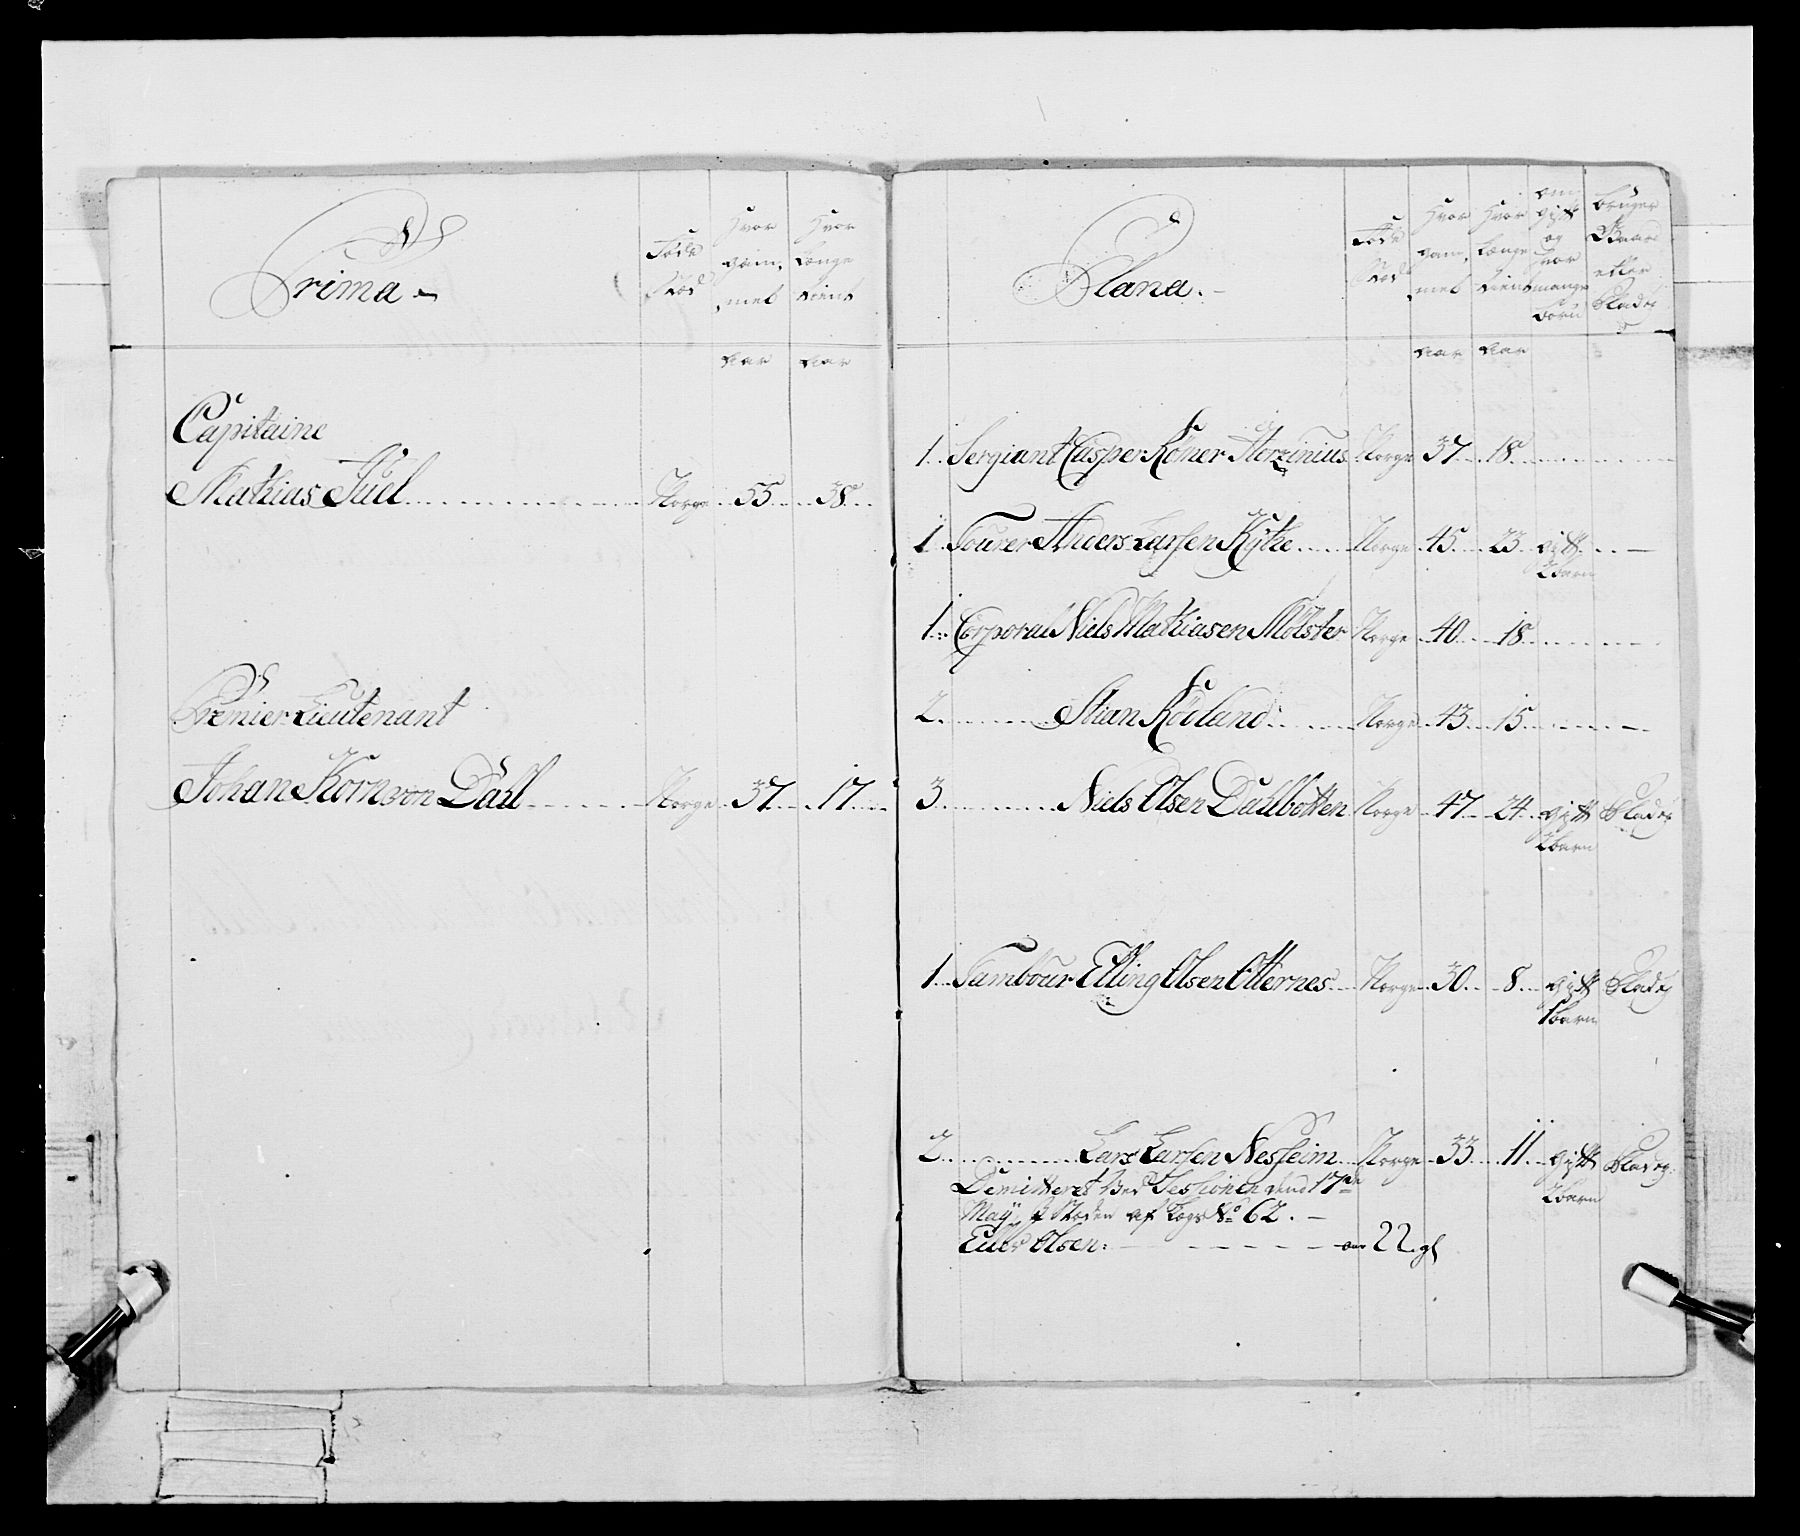 Prima
Føde Stæd
Hvor gammel
Hvor Længe tient
aar aar
Capitaine
Mathias Juel Norge 55 38
Premier Lieutenant
Johan Korn von Dahl Norge 37 17
Plana
Føde Stæd
Hvor gammel
Hvor Længe tient
om gift og hvor mange børn
bruger Gaard eller Pladts
aar aar
1 Sergiant Casper Römer Storzinius Norge 37 18
1 Fourer Anders Larsen Kytke Norge 45 23 gift
2 barn
1 Corporal Niels Mathiasen Mölster Norge 40 18
2 Stian Röeland Norge 43 15
3 Niels Olsen Dahlbotten Norge 47 24 gift Pladtz
2 barn
1 Tambour Elling Olsen Otternes Norge 30 8 gift Pladtz
1 barn
2 Lars Larsen Nesheim Norge 33 11 gift Pladtz
2 barn
Demitteret Ved Sessionen dend 17de
May, J Stæden af Lægd No 62.
Olsen: 22